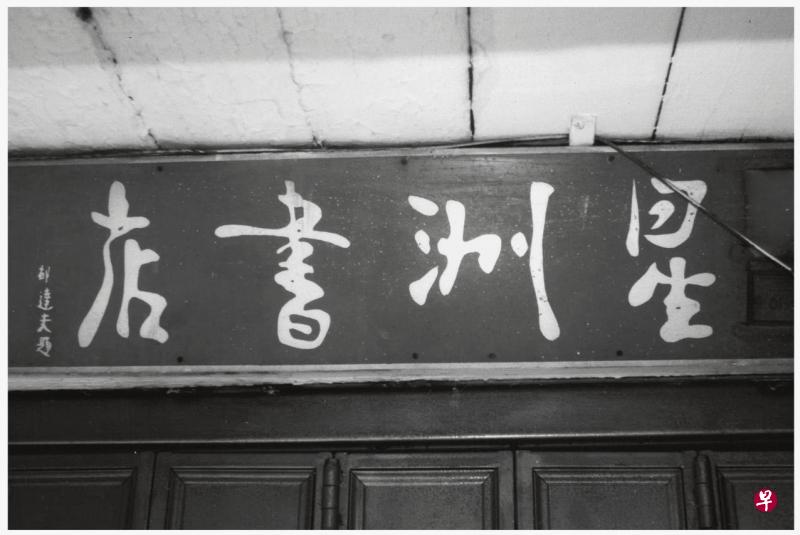 星洲書店
郁達夫題
早